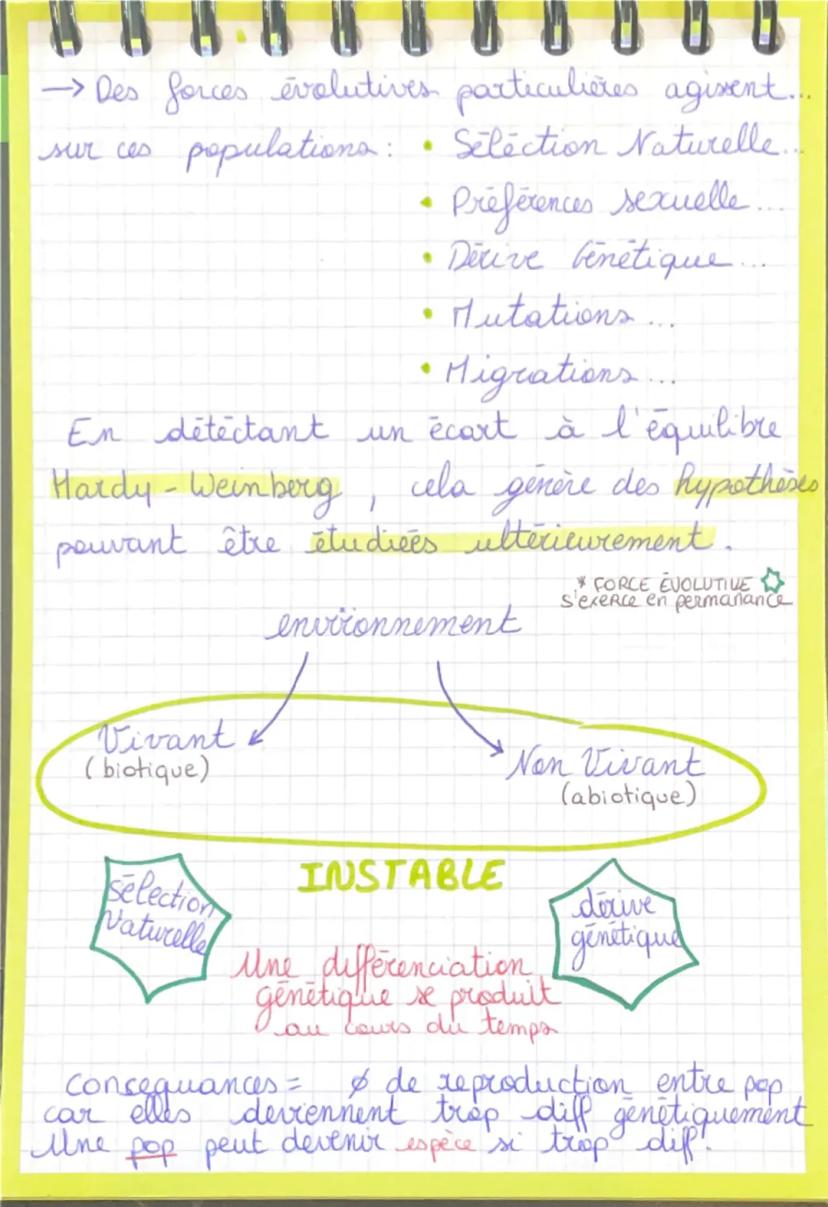 → Des forces évolutives particulières agissent...
sur ces populations : • Séléction Naturelle...
• Préférences sexuelle...
• Dérive Génétique...
• Mutations...
• Migrations...
En détéctant un écart à l'équilibre
Hardy-Weinberg, cela génère des hypothèses
pouvant être étudiées ultérieurement.
* FORCE ÉVOLUTIVE
s'exerce en permanance
environnement
Vivant
(biotique)
Non Vivant
(abiotique)
INSTABLE
Sélection
Naturelle
dérive
génétique
Une différenciation
génétique se produit
au cours du temps
consequances = ∅ de reproduction entre pop
car elles deviennent trop diff génétiquement
Une pop peut devenir espèce si trop diff.